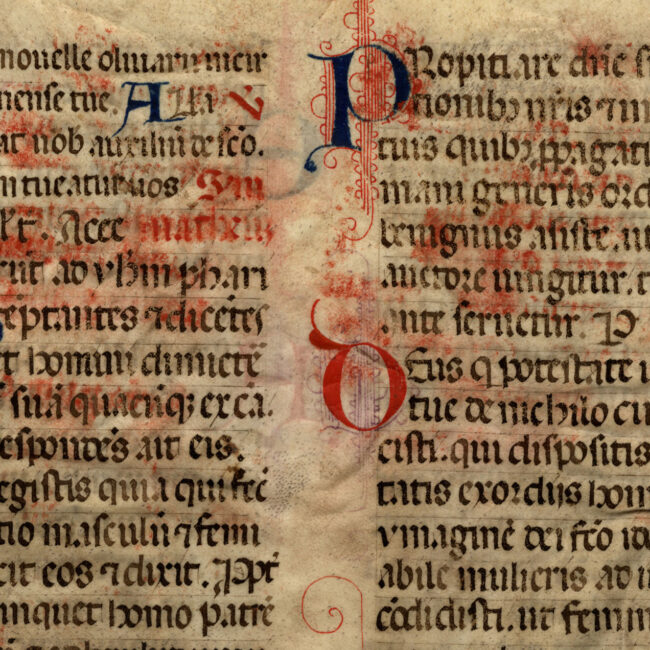 nouelle oliuarum mcir
mense tue. Alla V
at nob auxiliū de sc̄o.
n tueatur uos
Acce math xix
ad yhm phari
ceptantes ⁊ dicētes
homini dimictē
suā quacūqȝ ex ca.
espondēs ait eis.
egistis quia qui fec̄
masculū ⁊ femi
cit eos ⁊ dixit. Ppt̄
inquet homo patrē
PRopitiare dn̄e s
tionibȝ nr̄is ⁊ in
tuis quibȝ ppagati
mani generis ord
benignus assiste. ut
auctore iungitur. t
ante seruetur. P
DEus q potestate u
tue de nichilo cu
cisti. qui dispositis
tatis exordijs hom
ymaginē dei fc̄o id
abile mulieris ad iu
cōdidisti. ut femin